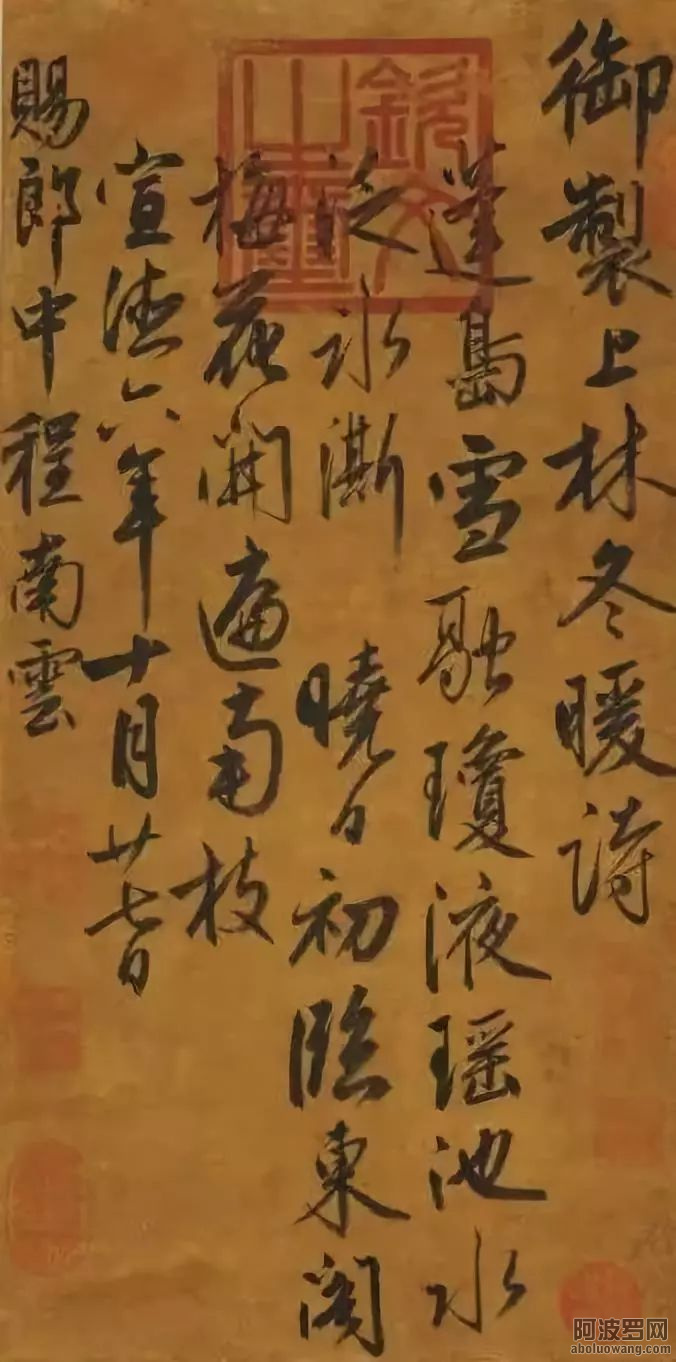 御製上林冬暖詩
蓬島雪融瓊液瑶池水
泛冰澌 曉日初臨東閣
梅花開遍南枝
宣德六年十月廿七日
賜郎中程南雲
欽文之璽
阿波罗网
aboluowang.com